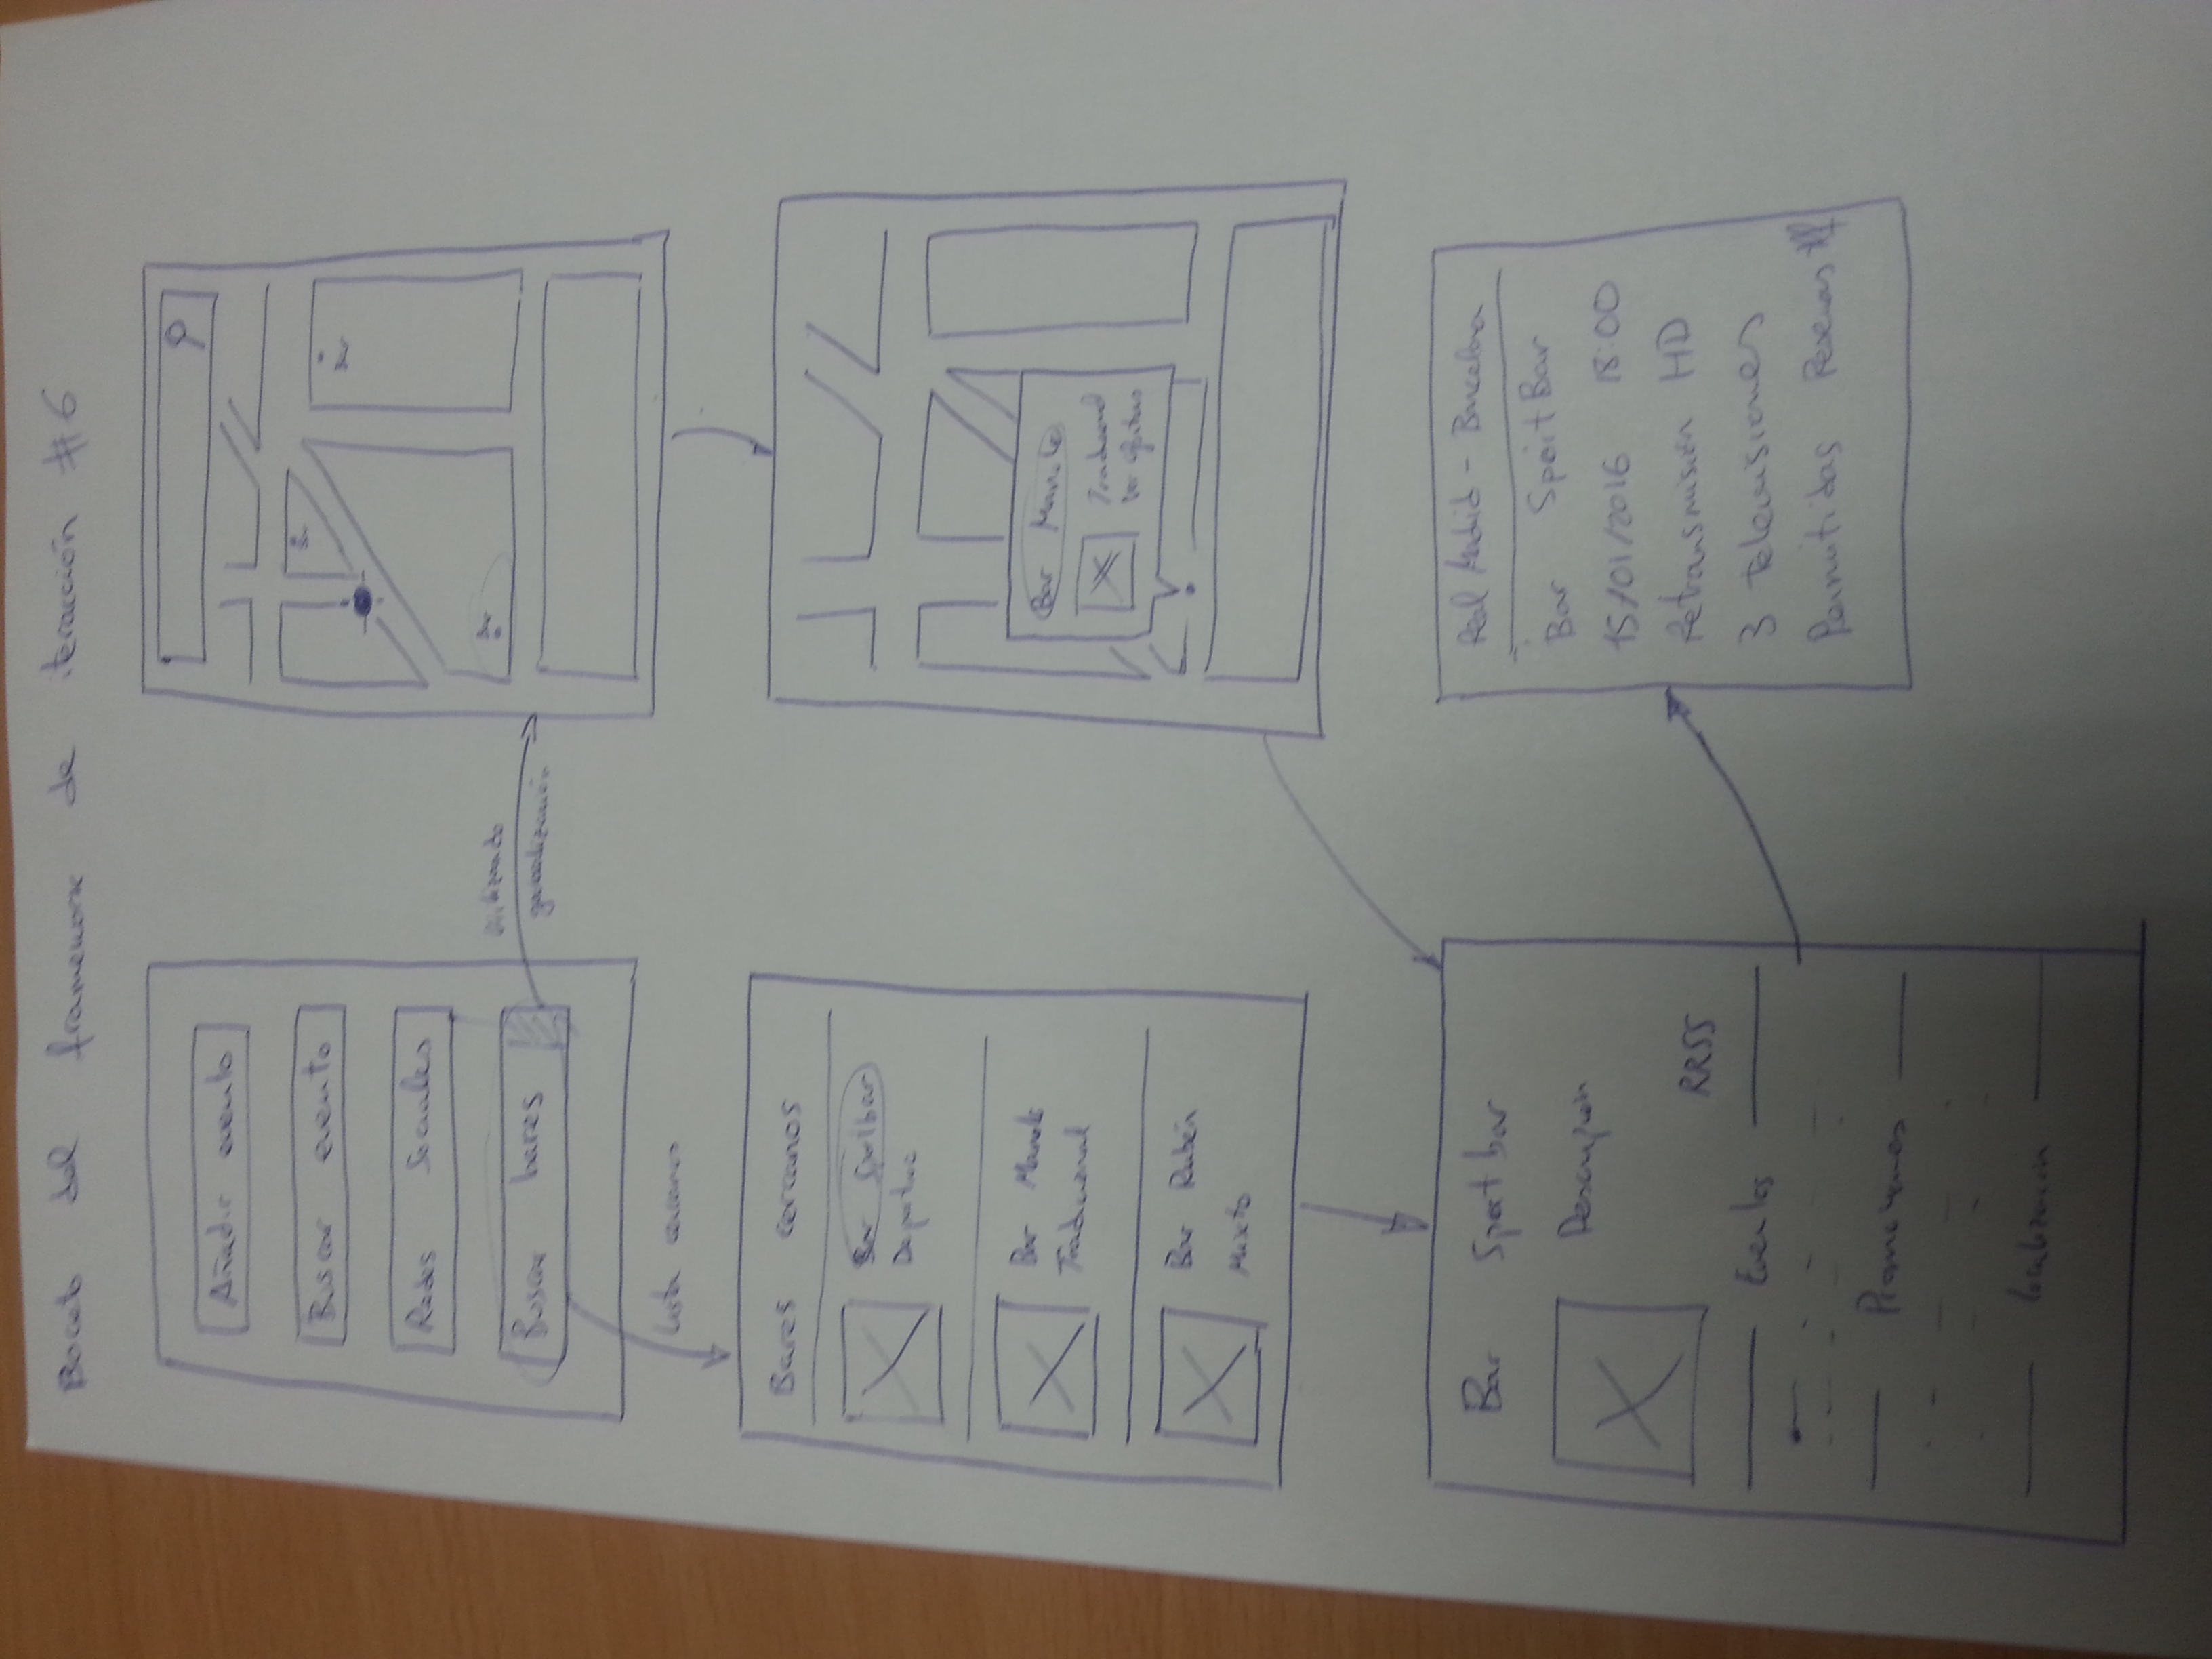 Boceto del framework de iteración #6
Añadir evento
Buscar evento
Redes Sociales
Buscar bares
Utilizando
Lista cercanos
Bar
Bar
Bar
Bares cercanos
Bar Sportbar
Deportivo
Bar Manolo
Tradicional
Bar Rubén
Mixto
Bar Manolo
Tradicional
Bar Sportbar
Descripción
RRSS
Eventos
Promociones
Localización
Real Madrid - Barcelona
Bar SportBar
15/01/2016 18:00
Retransmisión HD
3 televisiones
Permitidas Reservas